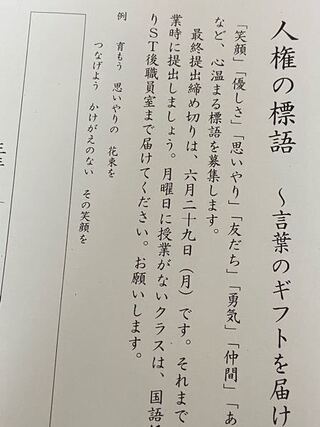 人権の標語　～言葉のギフトを届け
「笑顔」「優しさ」「思いやり」「友だち」「勇気」「仲間」「あ
など、心温まる標語を募集します。
最終提出締め切りは、六月二十九日（月）です。それまで
業時に提出しましょう。月曜日に授業がないクラスは、国語
りＳＴ後職員室まで届けてください。お願いします。
例　育もう　思いやりの　花束を
つなげよう　かけがえのない　その笑顔を